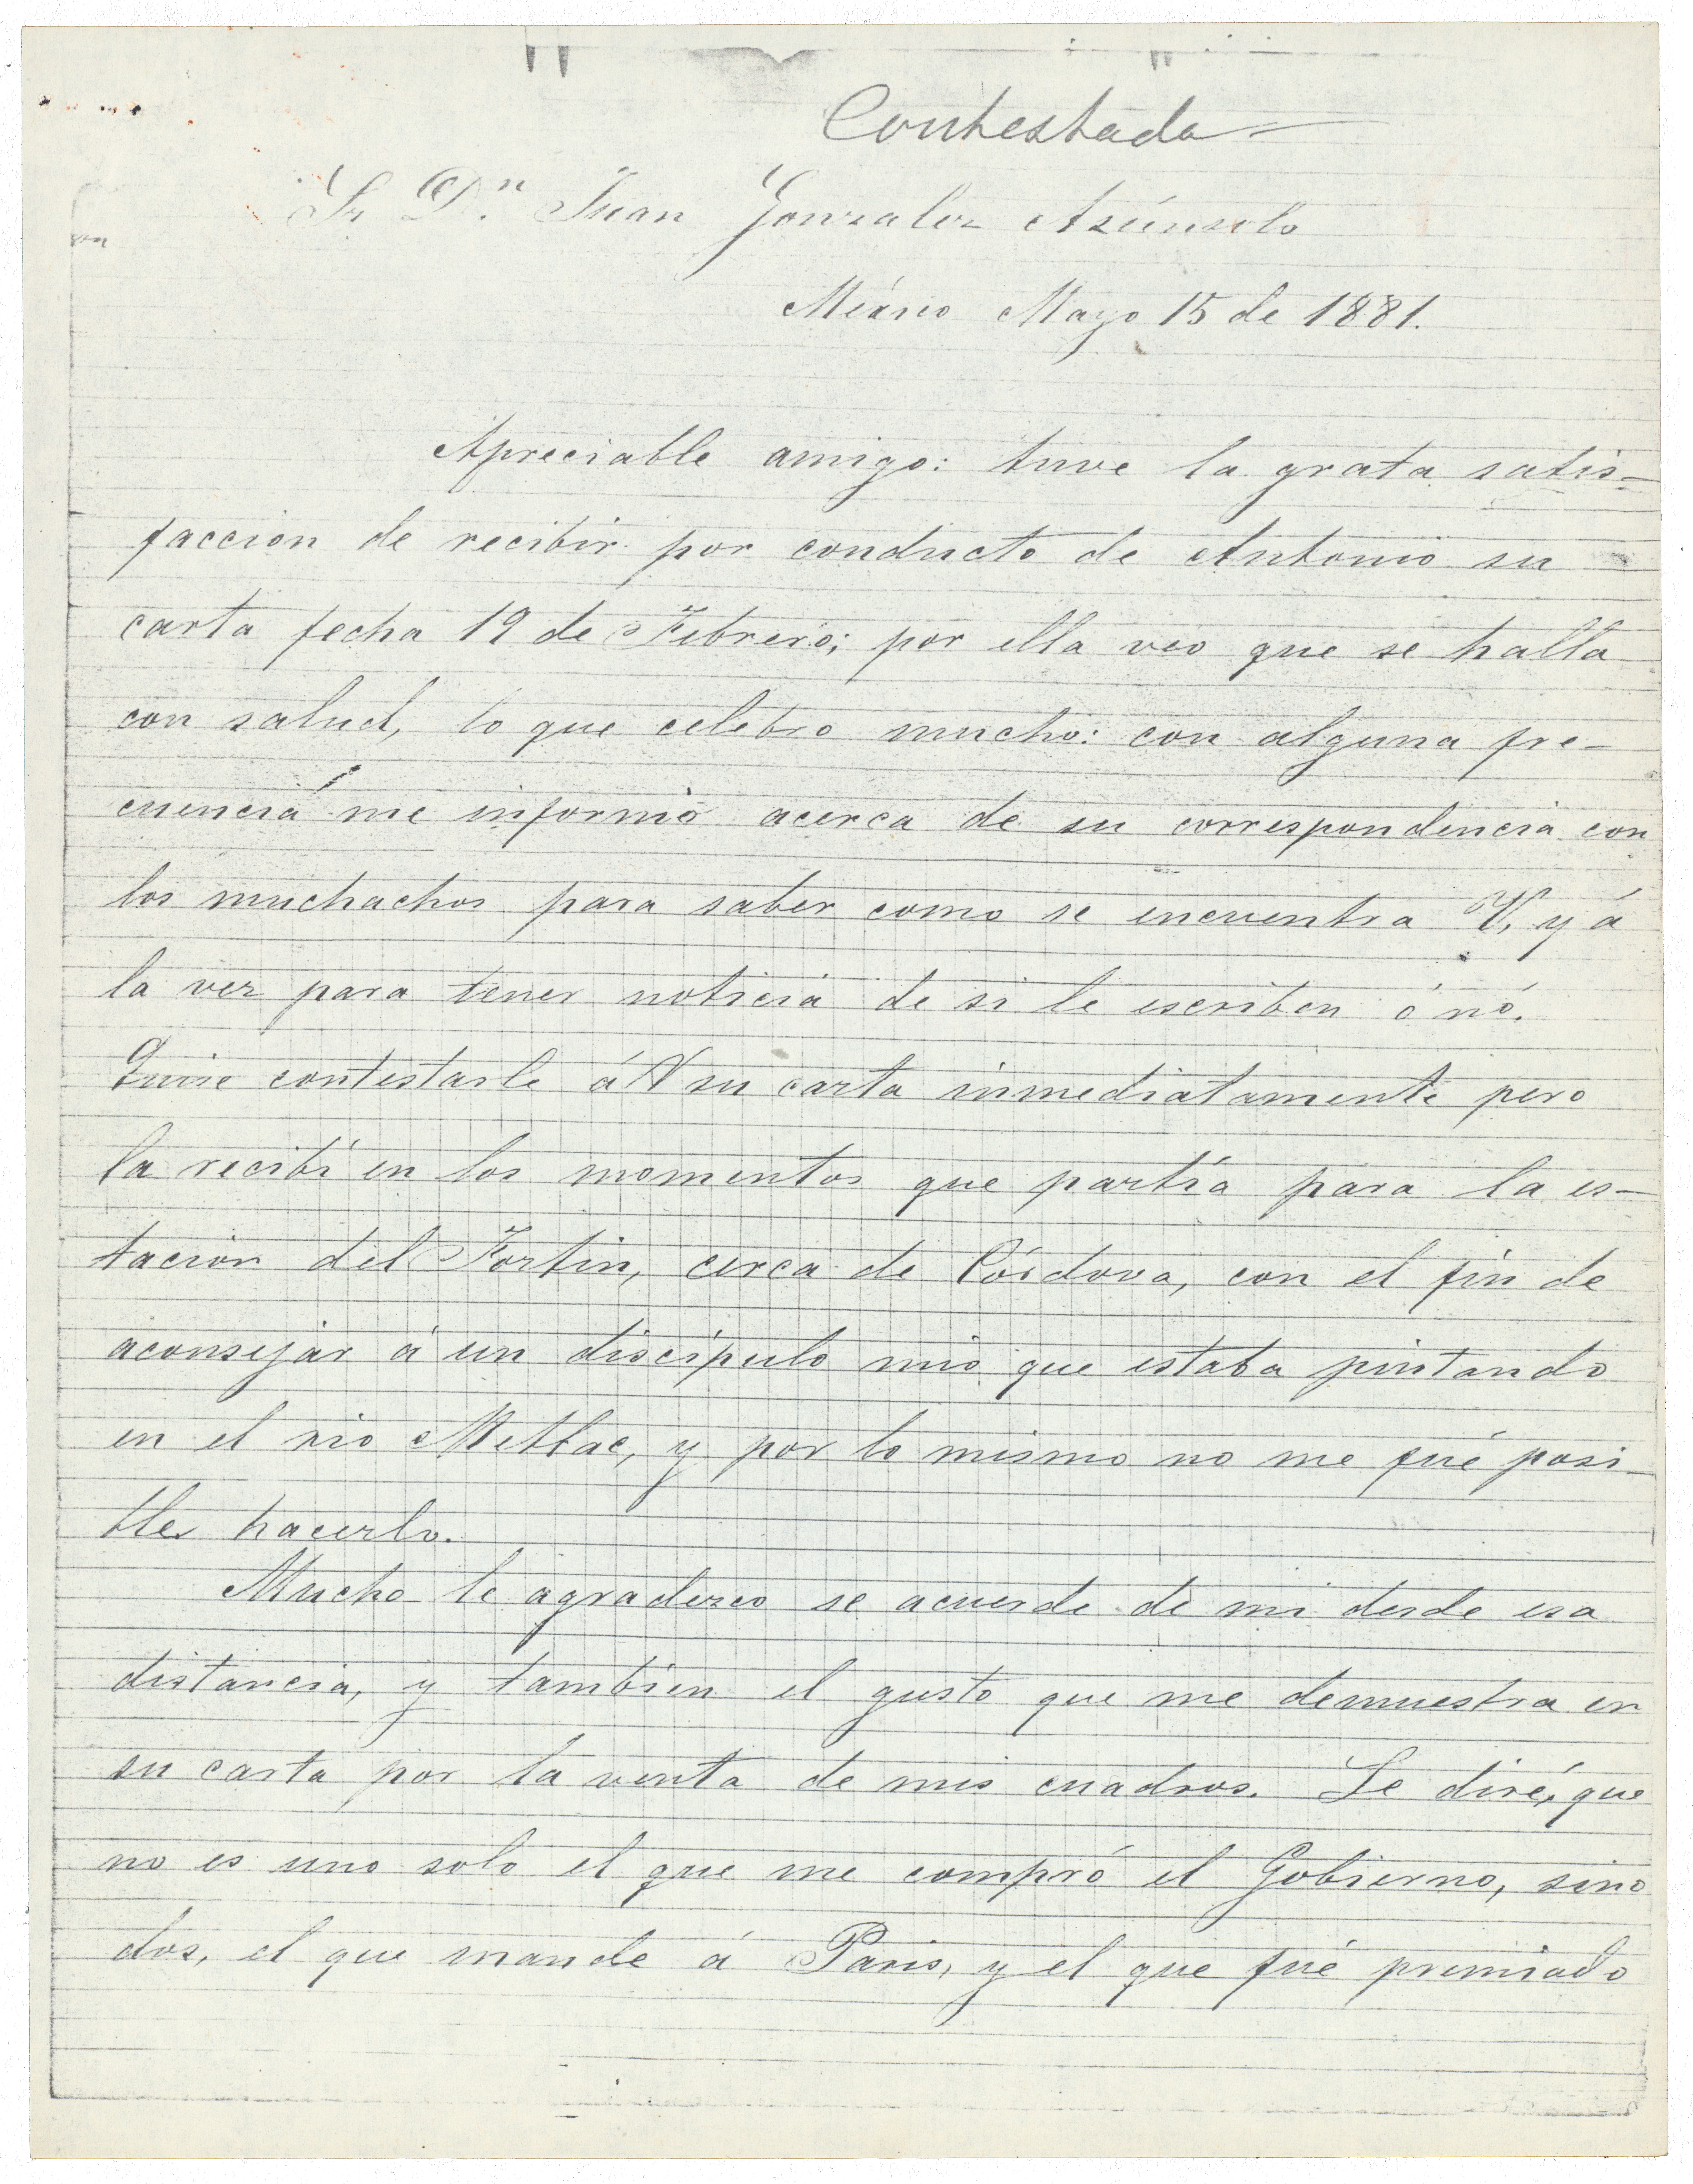 Contestada
Sr Dn. Juan Gonzalez Asúnsolo
México Mayo 15 de 1881.
Apreciable amigo: tuve la grata satis-
faccion de recibir por conducto de Antonio su
carta fecha 19 de Febrero; por ella veo que se halla
con salud, lo que celebro mucho: con alguna fre-
cuencia me informo acerca de su correspondencia con
los muchachos para saber como se encuentra V, y á
la vez para tener noticia de si le escriben ó nó.
Quise contestarle á V su carta inmediatamente pero
la recibí en los momentos que partía para la es-
tacion del Fortin, cerca de Córdova, con el fin de
aconsejar á un discípulo mio que estaba pintando
en el rio Metlac, y por lo mismo no me fué posi-
ble hacerlo.
Mucho le agradezco se acuerde de mi desde esa
distancia, y tambien el gusto que me demuestra en
su carta por la venta de mis cuadros. Le diré, que
no es uno solo el que me compró el Gobierno, sino
dos, el que mande á Paris, y el que fué premiado